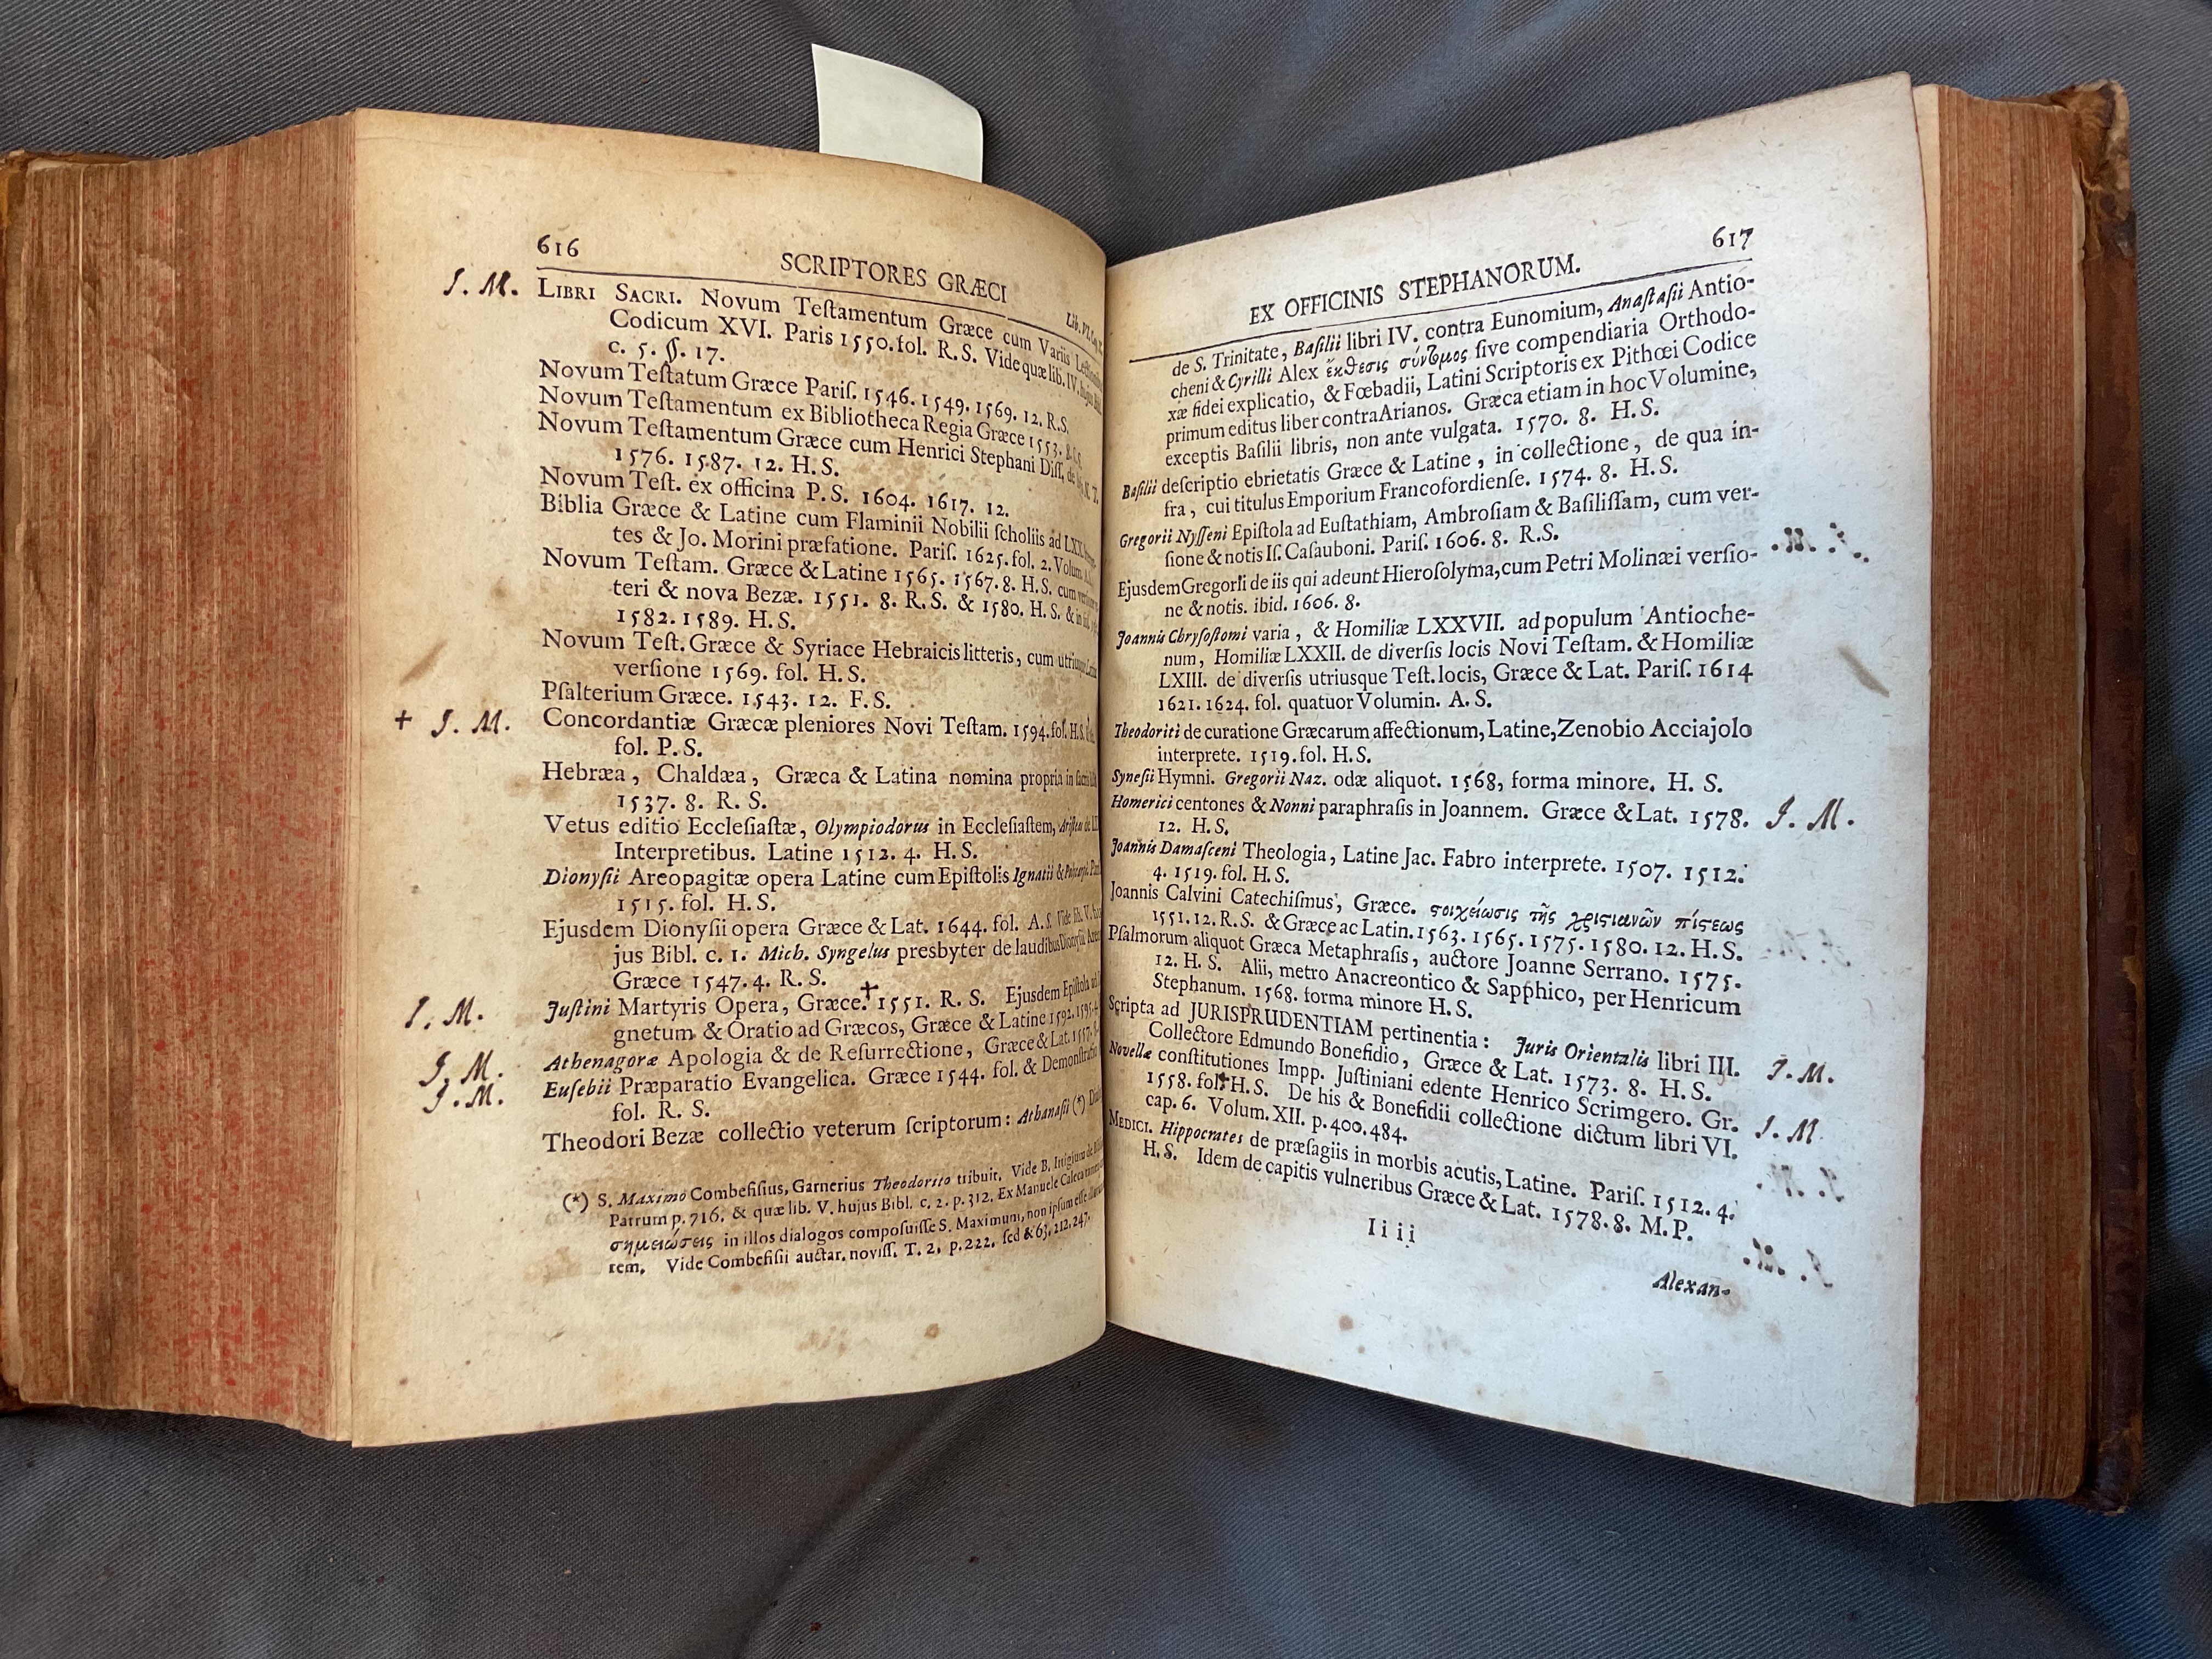 616
SCRIPTORES GRÆCI
Lib. VI.
J. M. LIBRI SACRI. Novum Teſtamentum Græce cum Variis
Codicum XVI. Paris 1550. fol. R. S. Vide quæ lib. IV. hujus
c. 5. §. 17.
Novum Teſtatum Græce Pariſ. 1546. 1549. 1569. 12. R.S.
Novum Teſtamentum ex Bibliotheca Regia Græce 1553. 8.
Novum Teſtamentum Græce cum Henrici Stephani Diſſ, de N. T.
1576. 1587. 12. H. S.
Novum Teſt. ex officina P. S. 1604. 1617. 12.
Biblia Græce & Latine cum Flaminii Nobilii ſcholiis ad LXX
tes & Jo. Morini præfatione. Pariſ. 1625. fol. 2. Volum.
Novum Teſtam. Græce & Latine 1565. 1567. 8. H.S. cum
teri & nova Bezæ. 1551. 8. R. S. & 1580. H. S. & in
1582. 1589. H. S.
Novum Teſt. Græce & Syriace Hebraicis litteris, cum
verſione 1569. fol. H. S.
Pſalterium Græce. 1543. 12. F. S.
+ J. M. Concordantiæ Græcæ pleniores Novi Teſtam. 1594. fol. H. S.
fol. P. S.
Hebræa, Chaldæa, Græca & Latina nomina propria in
1537. 8. R. S.
Vetus editio Eccleſiaſtæ, Olympiodorus in Eccleſiaſtem,
Interpretibus. Latine 1512. 4. H. S.
Dionyſii Areopagitæ opera Latine cum Epiſtolis Ignatii &
1515. fol. H. S.
Ejusdem Dionyſii opera Græce & Lat. 1644. fol. A. S. Vide lib. V.
jus Bibl. c. 1. Mich. Syngelus presbyter de laudibus Dionyſii
Græce 1547. 4. R. S.
J. M. Juſtini Martyris Opera, Græce. + 1551. R. S. Ejusdem Epiſtola ad
gnetum & Oratio ad Græcos, Græce & Latine 1592. 1595. 4.
J. M. Athenagoræ Apologia & de Reſurrectione, Græce & Lat. 1557.
J. M. Euſebii Præparatio Evangelica. Græce 1544. fol. &
fol. R. S.
Theodori Bezæ collectio veterum ſcriptorum: Athanaſii (*)
(*) S. Maximo Combefiſius, Garnerius Theodorito tribuit. Vide B.
Patrum p. 716. & quæ lib. V. hujus Bibl. c. 2. p. 312. Ex Manuele Caleca
σημειώσεις in illos dialogos compoſuiſſe S. Maximum, non ipſum eſſe
rem. Vide Combefiſii auctar. noviſſ. T. 2. p. 222. ſed & 63. 212. 247.
617
EX OFFICINIS STEPHANORUM.
de S. Trinitate, Baſilii libri IV. contra Eunomium, Anaſtaſii Antio-
cheni & Cyrilli Alex ἔκθεσις σύντομος ſive compendiaria Orthodo-
xæ fidei explicatio, & Fœbadii, Latini Scriptoris ex Pithœi Codice
primum editus liber contra Arianos. Græca etiam in hoc Volumine,
exceptis Baſilii libris, non ante vulgata. 1570. 8. H. S.
Baſilii deſcriptio ebrietatis Græce & Latine, in collectione, de qua in-
fra, cui titulus Emporium Francofordienſe. 1574. 8. H. S.
Gregorii Nyſſeni Epiſtola ad Euſtathiam, Ambroſiam & Baſiliſſam, cum ver-
ſione & notis Iſ. Caſauboni. Pariſ. 1606. 8. R.S.
Ejusdem Gregorii de iis qui adeunt Hieroſolyma, cum Petri Molinæi verſio-
ne & notis. ibid. 1606. 8.
Joannis Chryſoſtomi varia, & Homiliæ LXXVII. ad populum Antioche-
num, Homiliæ LXXII. de diverſis locis Novi Teſtam. & Homiliæ
LXIII. de diverſis utriusque Teſt. locis, Græce & Lat. Pariſ. 1614
1621. 1624. fol. quatuor Volumin. A. S.
Theodoriti de curatione Græcarum affectionum, Latine, Zenobio Acciajolo
interprete. 1519. fol. H. S.
Syneſii Hymni. Gregorii Naz. odæ aliquot. 1568, forma minore. H. S.
Homerici centones & Nonni paraphraſis in Joannem. Græce & Lat. 1578. J. M.
12. H. S.
Joannis Damaſceni Theologia, Latine Jac. Fabro interprete. 1507. 1512.
4. 1519. fol. H. S.
Joannis Calvini Catechiſmus, Græce. ϛοιχείωσις τῆς χριϛιανῶν πίϛεως
1551. 12. R. S. & Græce ac Latin. 1563. 1565. 1575. 1580. 12. H. S.
Pſalmorum aliquot Græca Metaphraſis, auctore Joanne Serrano. 1575.
12. H. S. Alii, metro Anacreontico & Sapphico, per Henricum
Stephanum. 1568. forma minore H. S.
Scripta ad JURISPRUDENTIAM pertinentia: Juris Orientalis libri III. J. M.
Collectore Edmundo Bonefidio, Græce & Lat. 1573. 8. H. S.
Novellæ conſtitutiones Impp. Juſtiniani edente Henrico Scrimgero. Gr. J. M
1558. fol. + H. S. De his & Bonefidii collectione dictum libri VI.
cap. 6. Volum. XII. p. 400. 484.
MEDICI. Hippocrates de præſagiis in morbis acutis, Latine. Pariſ. 1512. 4.
H. S. Idem de capitis vulneribus Græce & Lat. 1578. 8. M. P.
Iiii
Alexan-